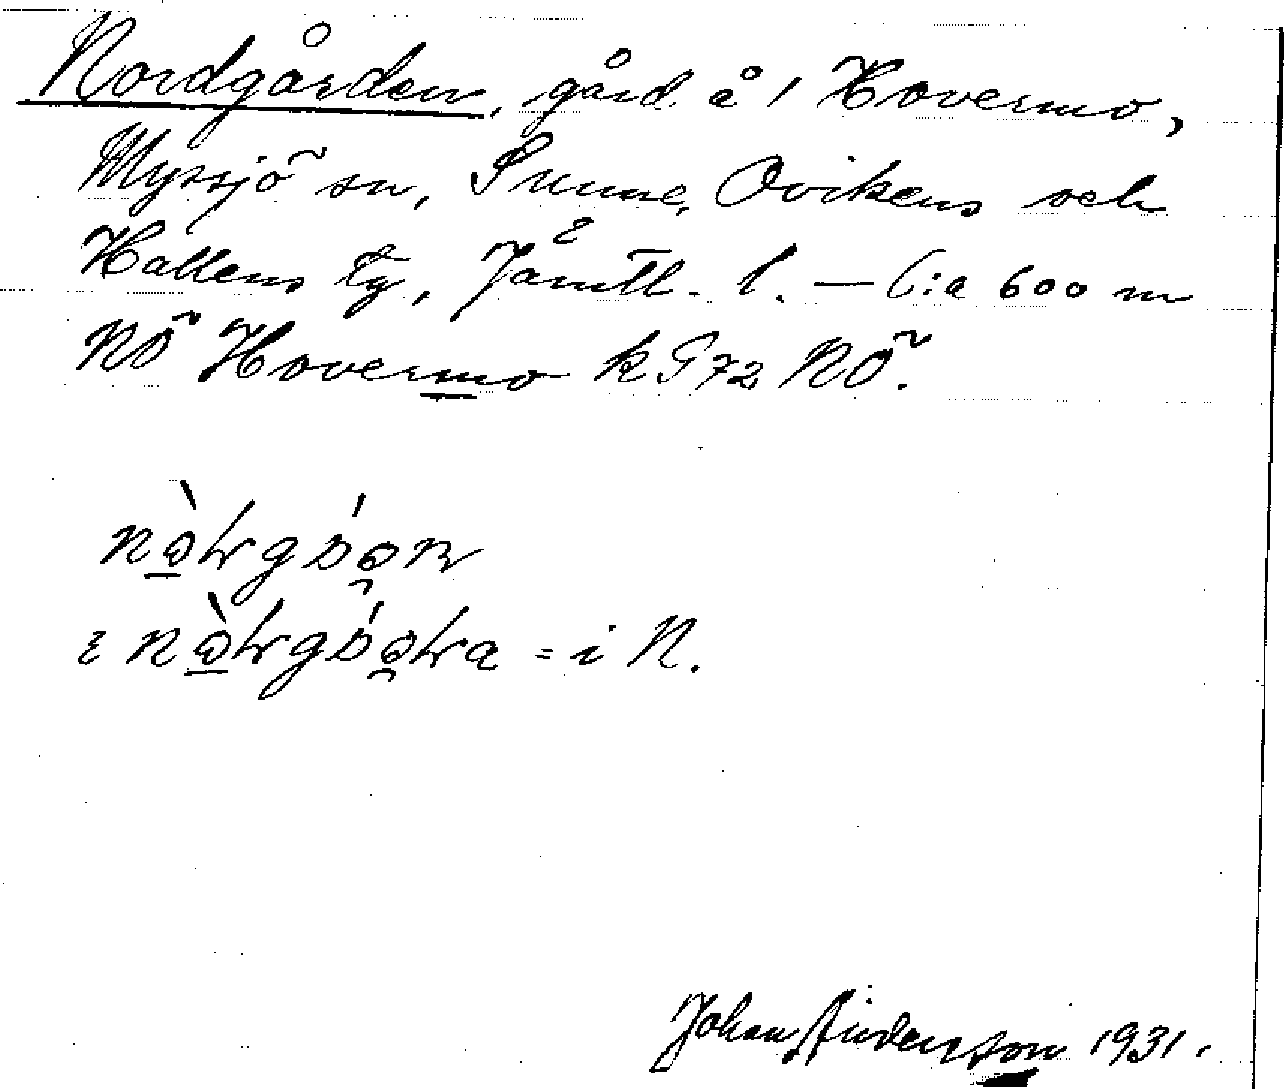 Nordgården, gård å 1 Hovermo,
Myssjö sn, Sunne, Ovikens och
Hallens tg, Jämtl. l. — C:a 600 m
NÖ Hovermo kG72 NÖ.
= i N.
Johan Anderson 1931.